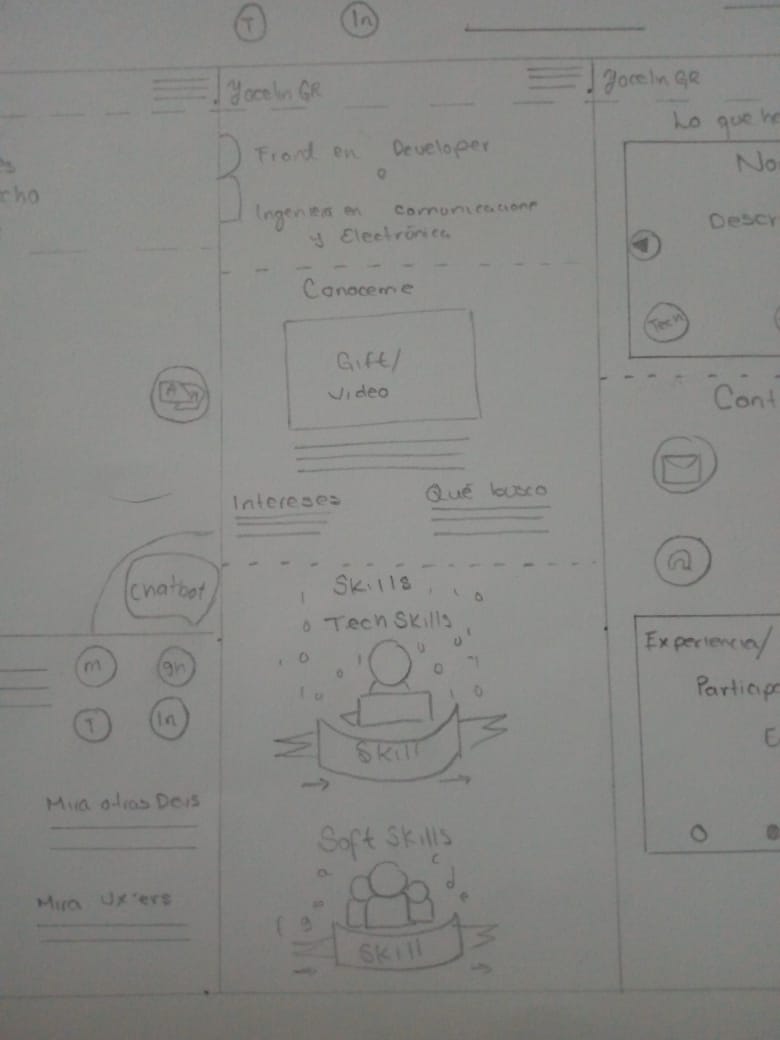 T
In
cho
Chatbot
m
gh
T
In
Mira otras Devs
Mira Ux'ers
Yocelin GR
Frond en Developer
o
Ingeniera en comunicaciones
y Electrónica
Conoceme
Gift/
video
Intereses
Qué busco
Skills
Tech Skills
Skill
Soft Skills
Skill
Yocelin GR
Lo que he
No
Descr
Tech
Cont
@
Experiencia/
Particip
E